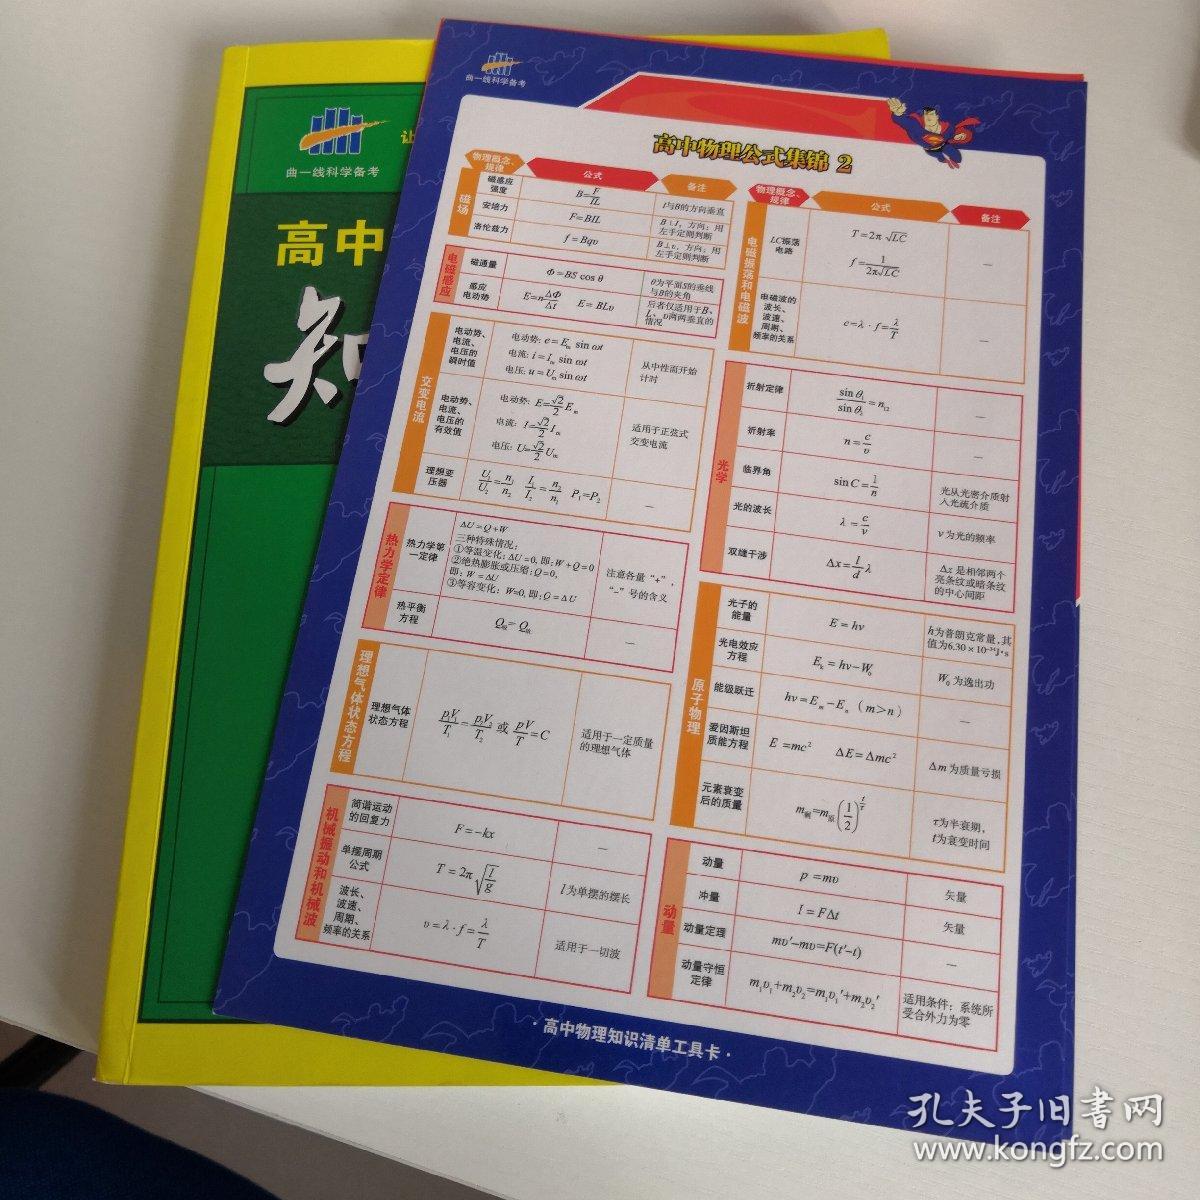 曲一线科学备考
让
高中
知
曲一线科学备考
高中物理公式集锦 2
物理概念、规律 公式 备注
磁场
磁感应强度 B=F/IL l与B的方向垂直
安培力 F=BIL B⊥I,方向:用左手定则判断
洛伦兹力 f=Bqυ B⊥υ,方向:用左手定则判断
电磁感应
磁通量 Φ=BS cos θ θ为平面S的垂线与B的夹角
感应电动势 E=nΔΦ/Δt E=BLυ 后者仅适用于B、L、υ两两垂直的情况
交变电流
电动势、电流、电压的瞬时值 电动势: e=Eₘ sin ωt
电流: i=Iₘ sin ωt
电压: u=Uₘ sin ωt
从中性面开始计时
电动势、电流、电压的有效值 电动势: E=√2/2 Eₘ
电流: I=√2/2 Iₘ
电压: U=√2/2 Uₘ
适用于正弦式交变电流
理想变压器 U₁/U₂=n₁/n₂ I₁/I₂=n₂/n₁ P₁=P₂ —
热力学定律
热力学第一定律 ΔU=Q+W
三种特殊情况:
①等温变化:ΔU=0,即:W+Q=0
②绝热膨胀或压缩:Q=0,
即:W=ΔU
③等容变化:W=0,即:Q=ΔU
注意各量“+”,“-”号的含义
热平衡方程 Q吸=Q放 —
理想气体状态方程
理想气体状态方程 p₁V₁/T₁=p₂V₂/T₂ 或 pV/T=C 适用于一定质量的理想气体
机械振动和机械波
简谐运动的回复力 F=-kx —
单摆周期公式 T=2π√(l/g) l为单摆的摆长
波长、波速、周期、频率的关系 υ=λ·f=λ/T 适用于一切波
物理概念、规律 公式 备注
电磁振荡和电磁波
LC振荡电路 T=2π√LC
f=1/2π√LC
—
电磁波的波长、波速、周期、频率的关系 c=λ·f=λ/T —
光学
折射定律 sin θ₁/sin θ₂=n₁₂ —
折射率 n=c/υ —
临界角 sin C=1/n 光从光密介质射入光疏介质
光的波长 λ=c/ν ν为光的频率
双缝干涉 Δx=l/d λ Δx是相邻两个亮条纹或暗条纹的中心间距
原子物理
光子的能量 E=hν h为普朗克常量,其值为6.30×10⁻³⁴J·s
光电效应方程 Eₖ=hν-W₀ W₀为逸出功
能级跃迁 hν=Eₘ-Eₙ (m>n) —
爱因斯坦质能方程 E=mc² ΔE=Δmc² Δm为质量亏损
元素衰变后的质量 m剩=m原(1/2)^(t/τ) τ为半衰期,t为衰变时间
动量
动量 p=mυ 矢量
冲量 I=FΔt 矢量
动量定理 mυ'-mυ=F(t'-t) —
动量守恒定律 m₁υ₁+m₂υ₂=m₁υ₁'+m₂υ₂' 适用条件:系统所受合外力为零
·高中物理知识清单工具卡·
孔夫子旧书网
www.kongfz.com